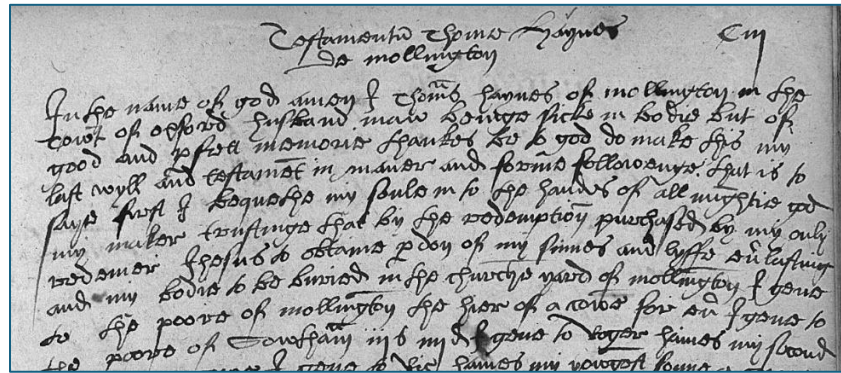 Testamentū Thome Haynes Ciij
de mollington
In the name of god amen I Thoms haynes of mollington in the
Cowt of oxford husband man beinge sicke in bodie but of
good and pfett memorie thankes be to god do make this my
last wyll and testamēt in maner and forme followenge. that is to
saye first I bequethe my soule in to the handes of all mightie god
my maker trustinge that by the redemption purchased by my only
redemer Jhesus to obtaine pdon of my sinnes and lyffe eūlasting
and my bodie to be buried in the churche yard of mollington I geue
to the poore of mollington the hier of a cowe for eū I geue to
the poore of iijs iiijd I geue to Roger haines my second
I geue to haines my yongest sonne